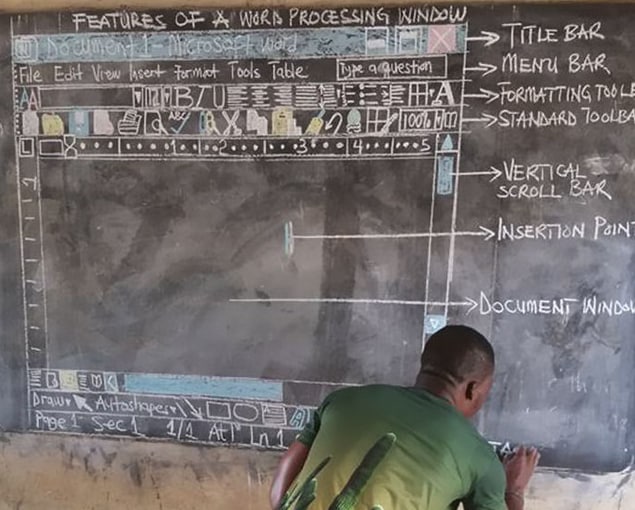 FEATURES OF A WORD PROCESSING WINDOW
Document 1 - Microsoft Word
TITLE BAR
File Edit View Insert Format Tools Table
Type a question
MENU BAR
AA
B I U
A
FORMATTING TOOLB
ABC
100%
STANDARD TOOLBA
L
1 2 3 4 5
VERTICAL
SCROLL BAR
INSERTION POINT
DOCUMENT WINDOW
Draw Autoshapes
A
Page 1 Sec 1 1/1 At 1" Ln 1